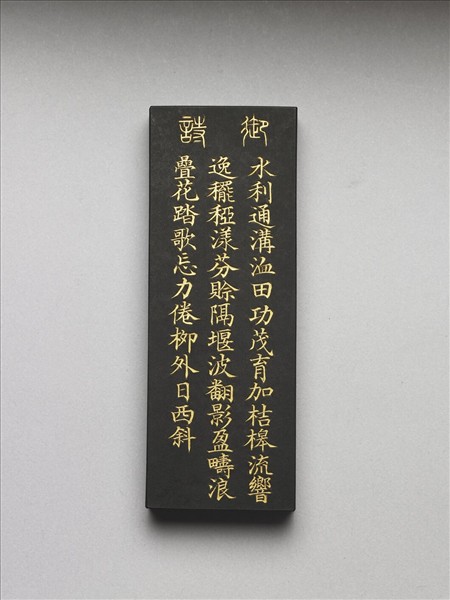 御詩
水利通溝洫田功茂育加桔槹流響
逸䆉稏漾芬賒隔堰波翻影盈疇浪
疊花踏歌忘力倦柳外日西斜